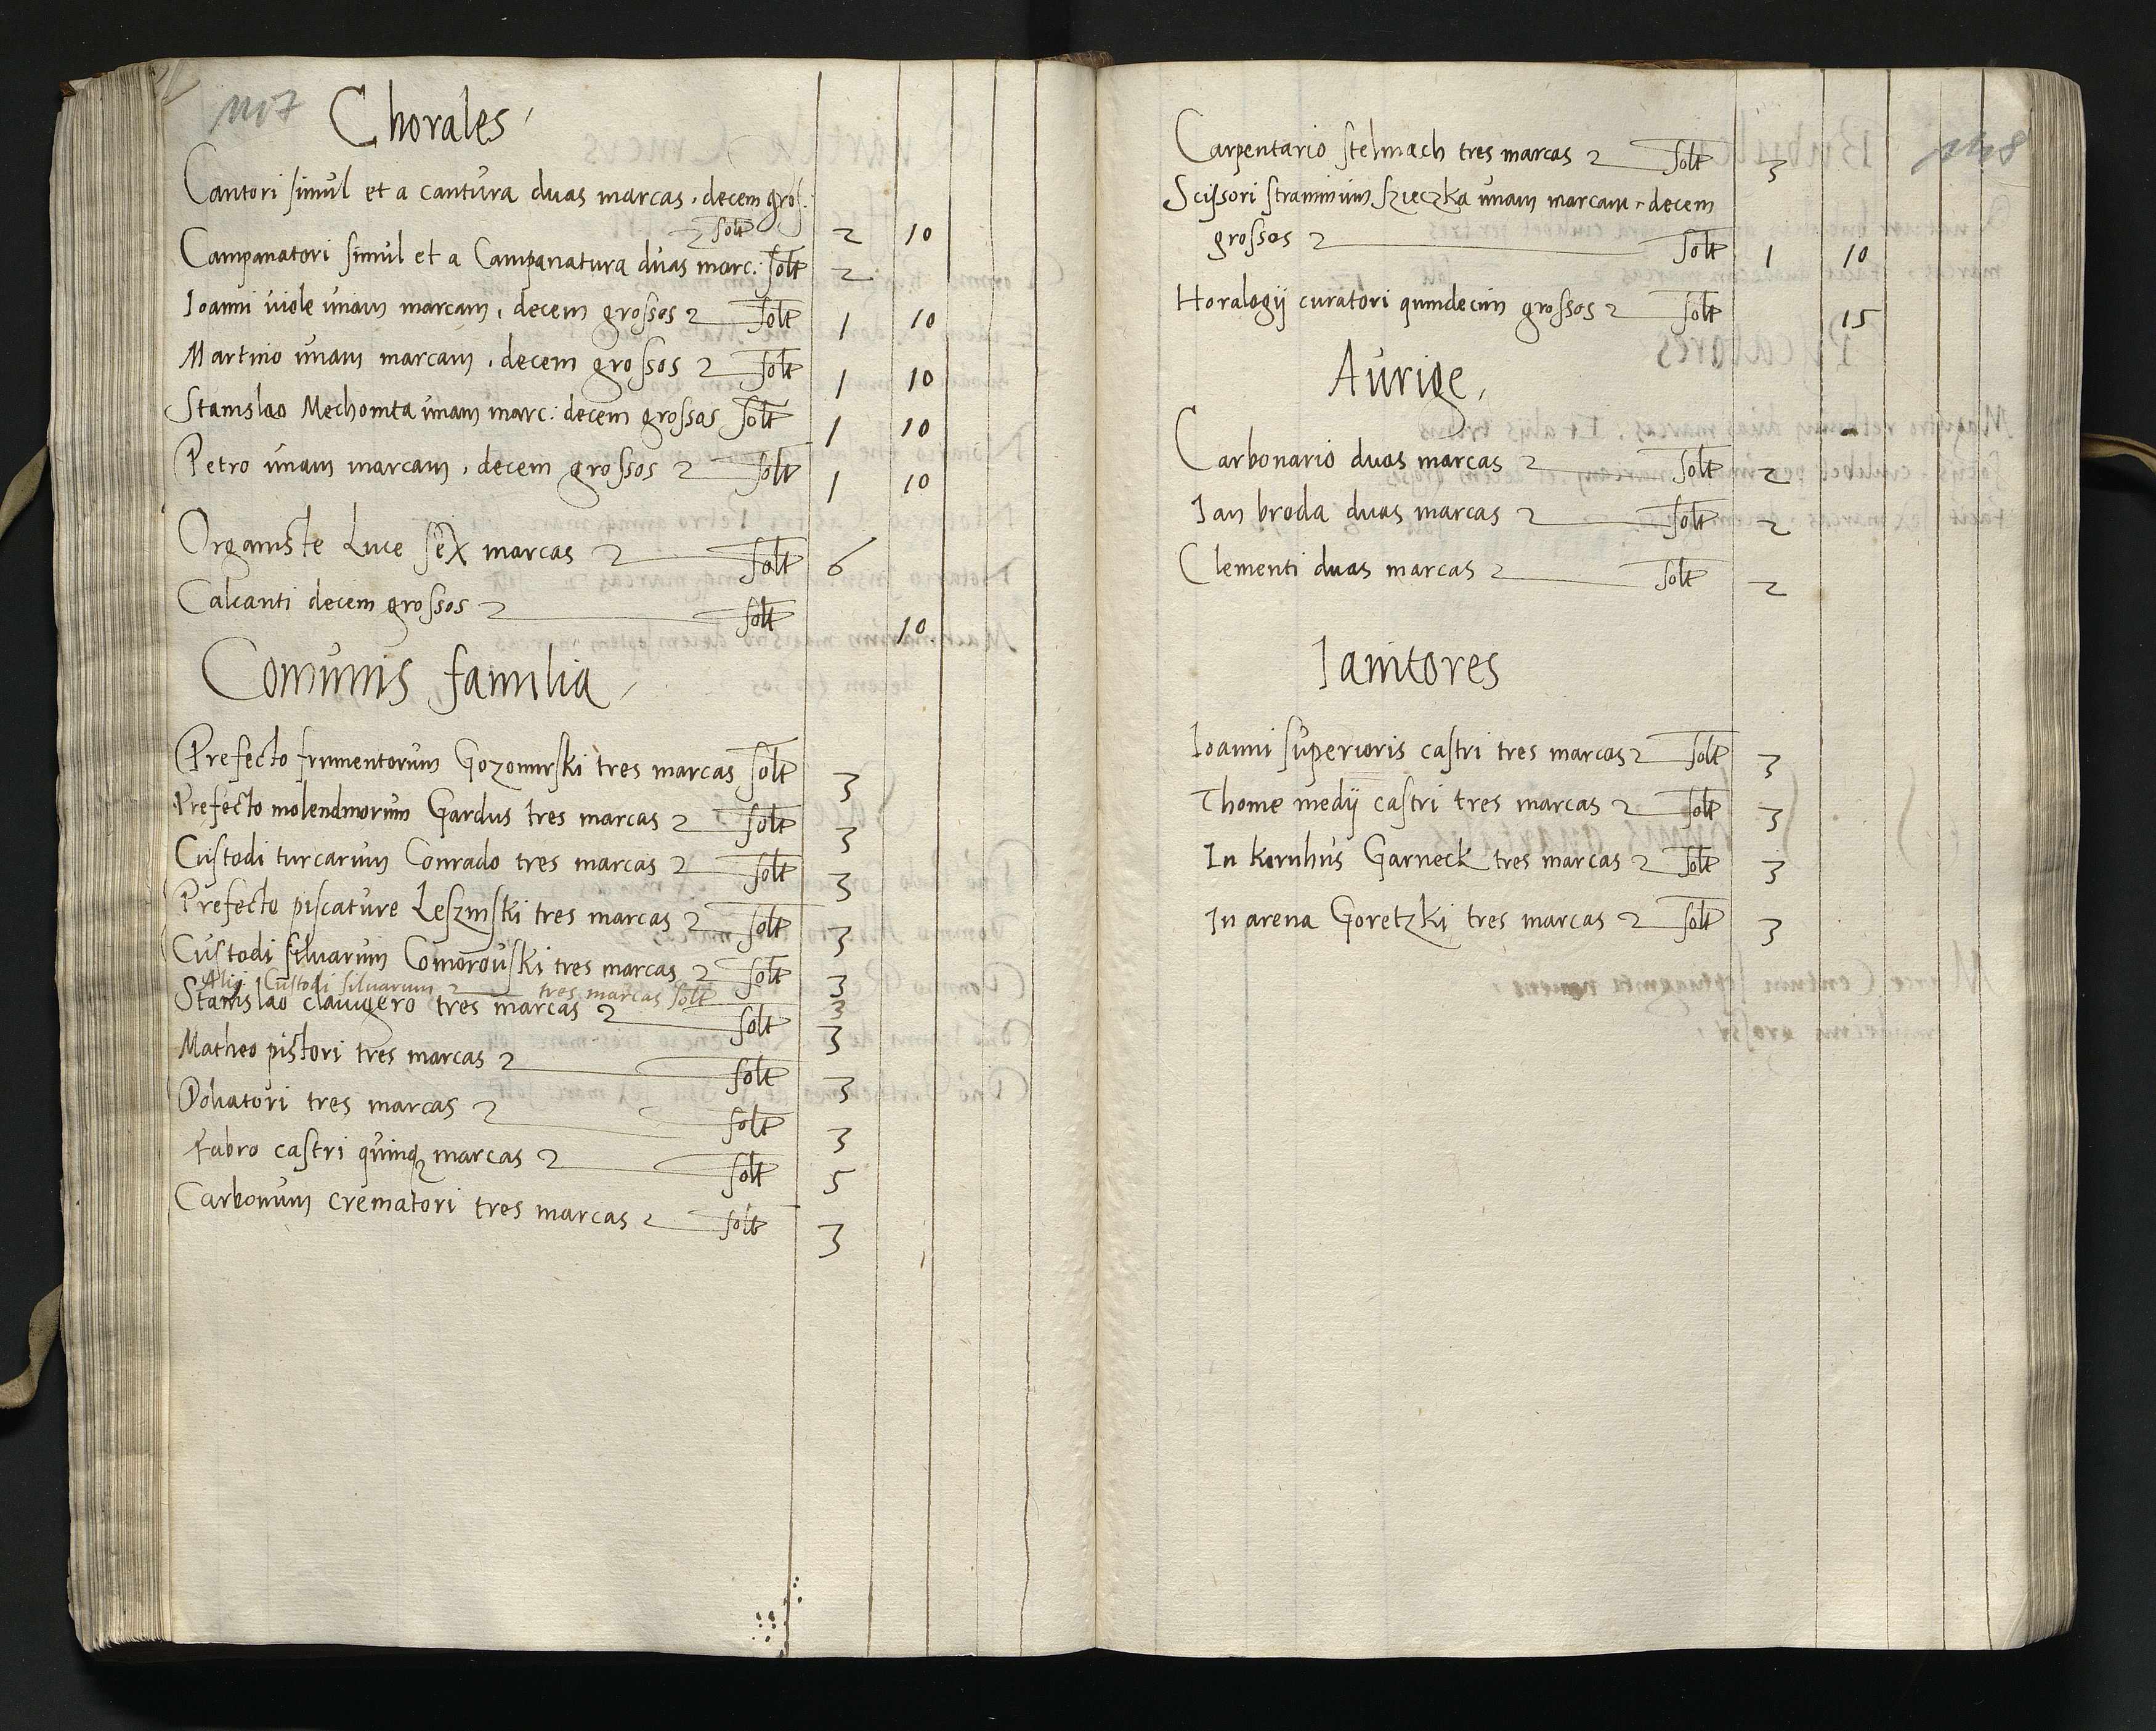 Chorales
Cantori simul et a cantura duas marcas, decem gros:
solt 2 10
Campanatori simul et a Campanatura duas marc: solt 2
Ioanni viole unam marcam, decem grossos solt 1 10
Martino unam marcam, decem grossos solt 1 10
Stanislao Mechonita unam marc: decem grossos solt 1 10
Petro unam marcam, decem grossos solt 1 10
Organiste Luce sex marcas solt 6
Calcanti decem grossos solt 10
Comunis familia
Prefecto frumentorum Gozomirski tres marcas solt 3
Prefecto molendinorum Gardus tres marcas solt 3
Custodi turcarum Conrado tres marcas solt 3
Prefecto piscature Leszinski tres marcas solt 3
Custodi siluarum Comorouski tres marcas solt 3
Alij Custodi siluarum tres marcas solt 3
Stanislao clauigero tres marcas solt 3
Matheo pistori tres marcas solt 3
Doliatori tres marcas solt 3
Fabro castri quinqz marcas solt 5
Carbonum crematori tres marcas solt 3
Carpentario stelmach tres marcas solt 3
Scissori straminum szieczka unam marcam, decem
grossos solt 1 10
Horalogij curatori quindecim grossos solt 15
Aurige,
Carbonario duas marcas solt 2
Ian broda duas marcas solt 2
Clementi duas marcas solt 2
Ianitores
Ioanni superioris castri tres marcas solt 3
Thome medij castri tres marcas solt 3
In kornhus Garneck tres marcas solt 3
In arena Goretzki tres marcas solt 3